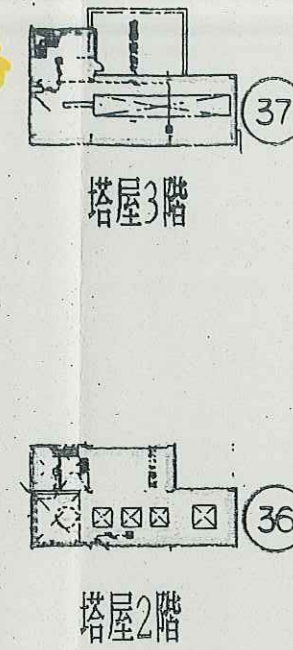 37
塔屋3階
36
塔屋2階